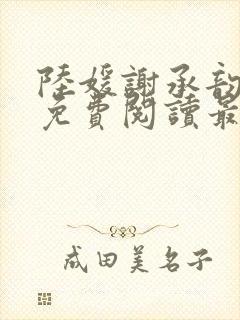 陸媛謝承韵
免費閱讀最
成田美名子